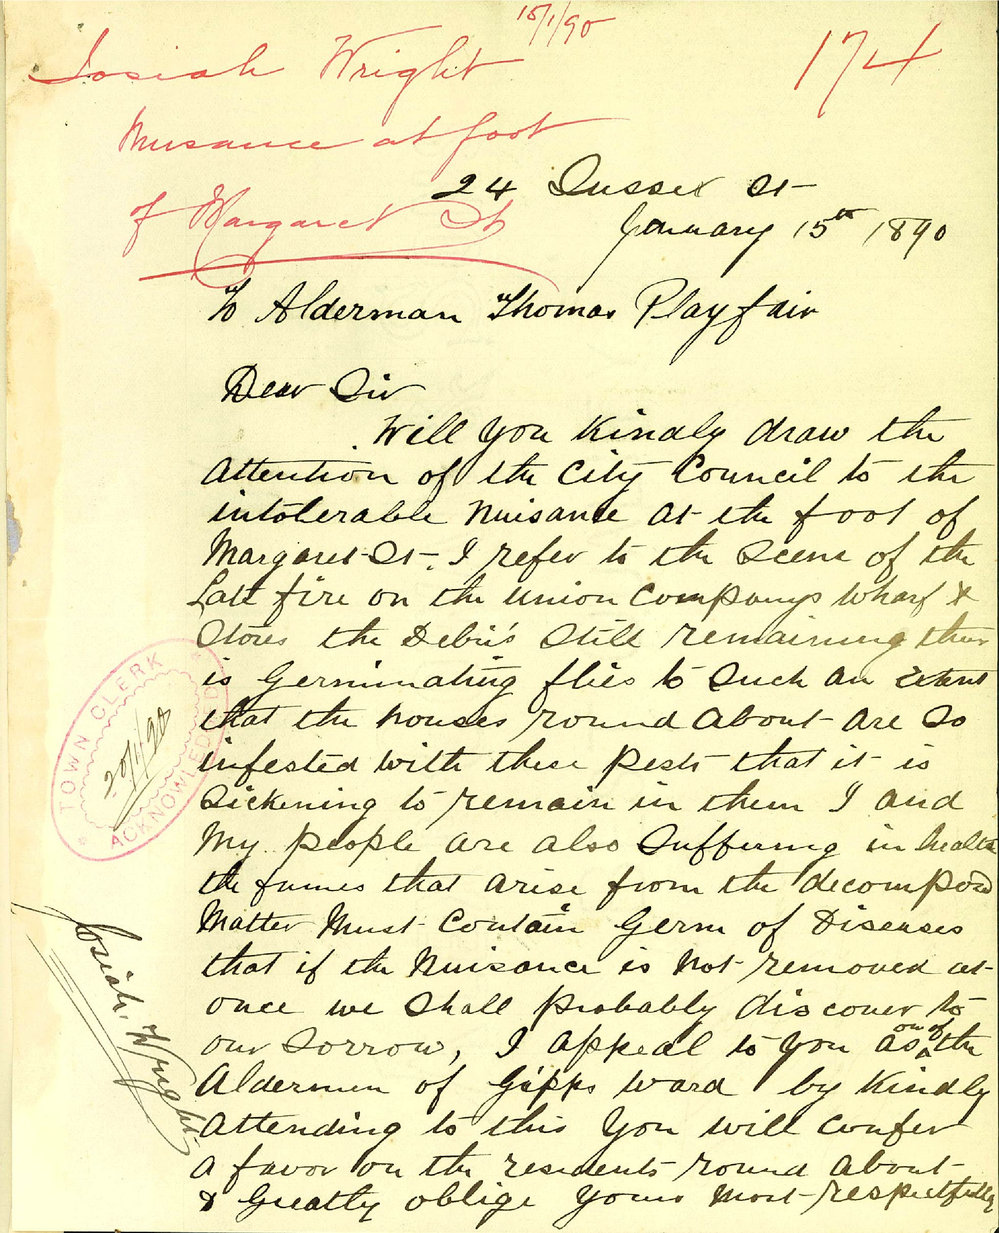 15/1/90
174
Josiah Wright
Nuisance at foot
of Margaret St
24 Sussex St
January 15th 1890
To Alderman Thomas Playfair
Dear Sir
Will you Kindly draw the
Attention of the City Council to the
intolerable Nuisance at the foot of
Margaret St. I refer to the Scene of the
Late fire on the Union Companys Wharf &
Stores the Debris Still remaining there
is Germinating flies to Such an Extent
that the houses round About are So
infested with these pests that it is
Sickening to remain in them I and
My people are also Suffering in health
the fumes that arise from the decomposed
Matter Must Contain Germ of Diseases
that if the Nuisance is Not removed at
once we Shall probably discover to
our Sorrow, I appeal to you as one of the
Aldermen of Gipps Ward by Kindly
Attending to this You will Confer
a favor on the residents round about
& Greatly oblige Yours Most respectfully
Josiah Wright
TOWN CLERK
20/1/90
ACKNOWLEDGED